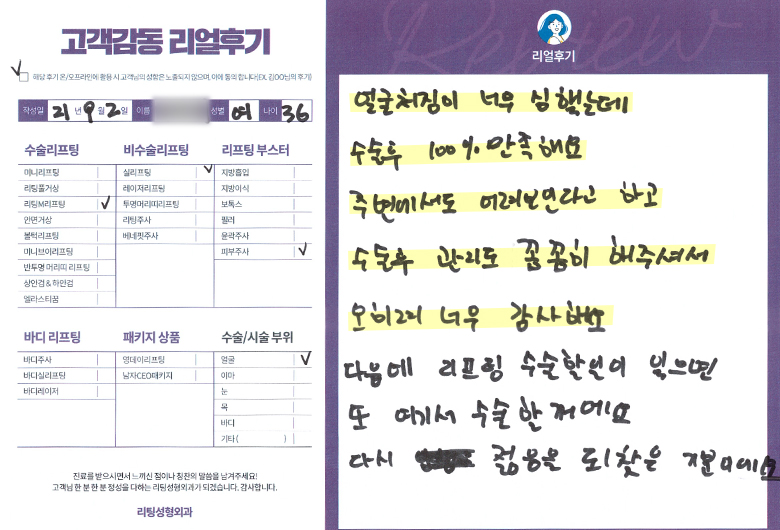 고객감동 리얼후기
✓ 해당 후기 온/오프라인에 활용 시 고객님의 성함은 노출되지 않으며, 이에 동의 합니다(EX. 김OO님의 후기)
작성일 21년 9월 2일 이름 성별 여 나이 36
수술리프팅
미니리프팅
리팅풀거상
리팅M리프팅 ✓
안면거상
볼턱리프팅
미니브이리프팅
반투명 머리띠 리프팅
상안검 & 하안검
엘라스티꿈
비수술리프팅
실리프팅 ✓
레이저리프팅
투명머리띠리프팅
리팅주사
베네핏주사
리프팅 부스터
지방흡입
지방이식
보톡스
필러
윤곽주사
피부주사 ✓
바디 리프팅
바디주사
바디실리프팅
바디레이저
패키지 상품
영데이리프팅
남자CEO패키지
수술/시술 부위
얼굴 ✓
이마
눈
목
바디
기타 ( )
진료를 받으시면서 느끼신 점이나 칭찬의 말씀을 남겨주세요!
고객님 한 분 한 분 정성을 다하는 리팅성형외과가 되겠습니다. 감사합니다.
리팅성형외과
Review
리얼후기
얼굴처짐이 너무 심했는데
수술후 100% 만족해요
주변에서도 어려보인다고 하고
수술후 관리도 꼼꼼히 해주셔서
오히려 너무 감사해요
다음에 리프팅 수술할인이 있으면
또 여기서 수술할꺼에요
다시 젊음을 되찾은 기분이에요